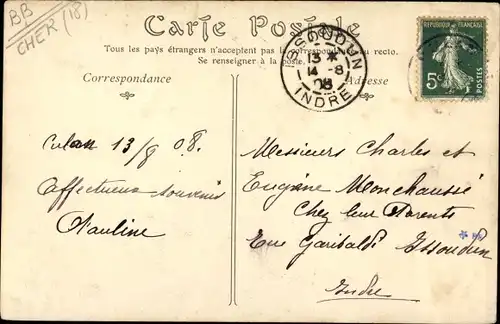 BB
CHER (18)
Carte Postale
Tous les pays étrangers n'acceptent pas la correspondance au recto.
Se renseigner à la poste.
Correspondance
Adresse
ISSOUDUN
13 *
14 -8
08
INDRE
RÉPUBLIQUE FRANÇAISE
5c
POSTES
Culan 13/8 08.
Affectueux souvenirs
Pauline
Messieurs Charles et
Eugène Monchaussé
Chez leur Parents
Rue Garibaldi Issoudun
Indre